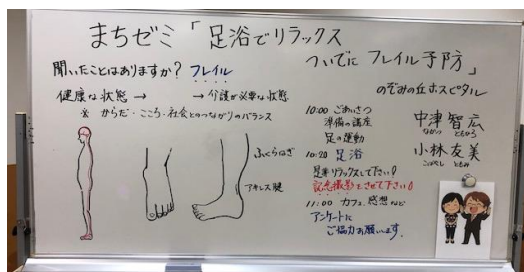 まちゼミ「足浴でリラックス
ついでに フレイル予防」
聞いたことはありますか? フレイル
のぞみの丘ホスピタル
健康な状態 → → 介護が必要な状態
※ からだ・こころ・社会とのつながりのバランス
ふくらはぎ
アキレス腱
10:00 ごあいさつ
準備の講座
足の運動
10:20 足浴
足湯リラックスして下さい!
記念撮影をさせて下さい!
11:00 カフェ、感想など
アンケートに
ご協力お願います。
中津智広
なかつ ともひろ
小林友美
こばやし ともみ